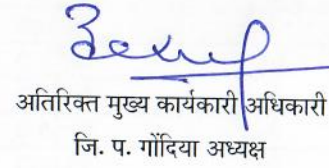 अतिरिक्त मुख्य कार्यकारी अधिकारी
जि. प. गोंदिया अध्यक्ष